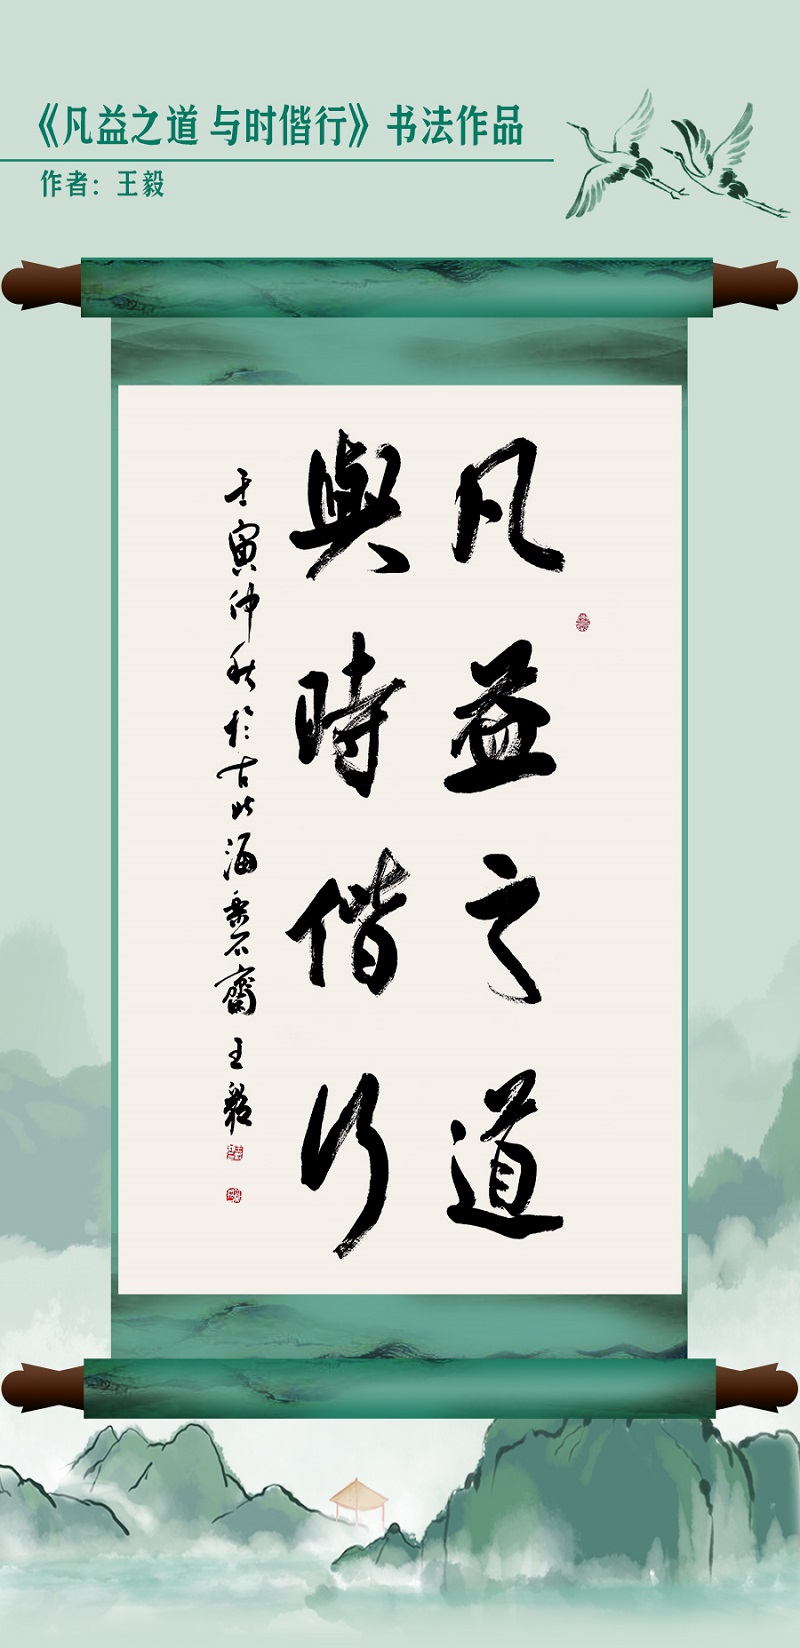 《凡益之道 与时偕行》书法作品
作者：王毅
凡益之道
與時偕行
壬寅仲秋於古北海磊石齋王毅